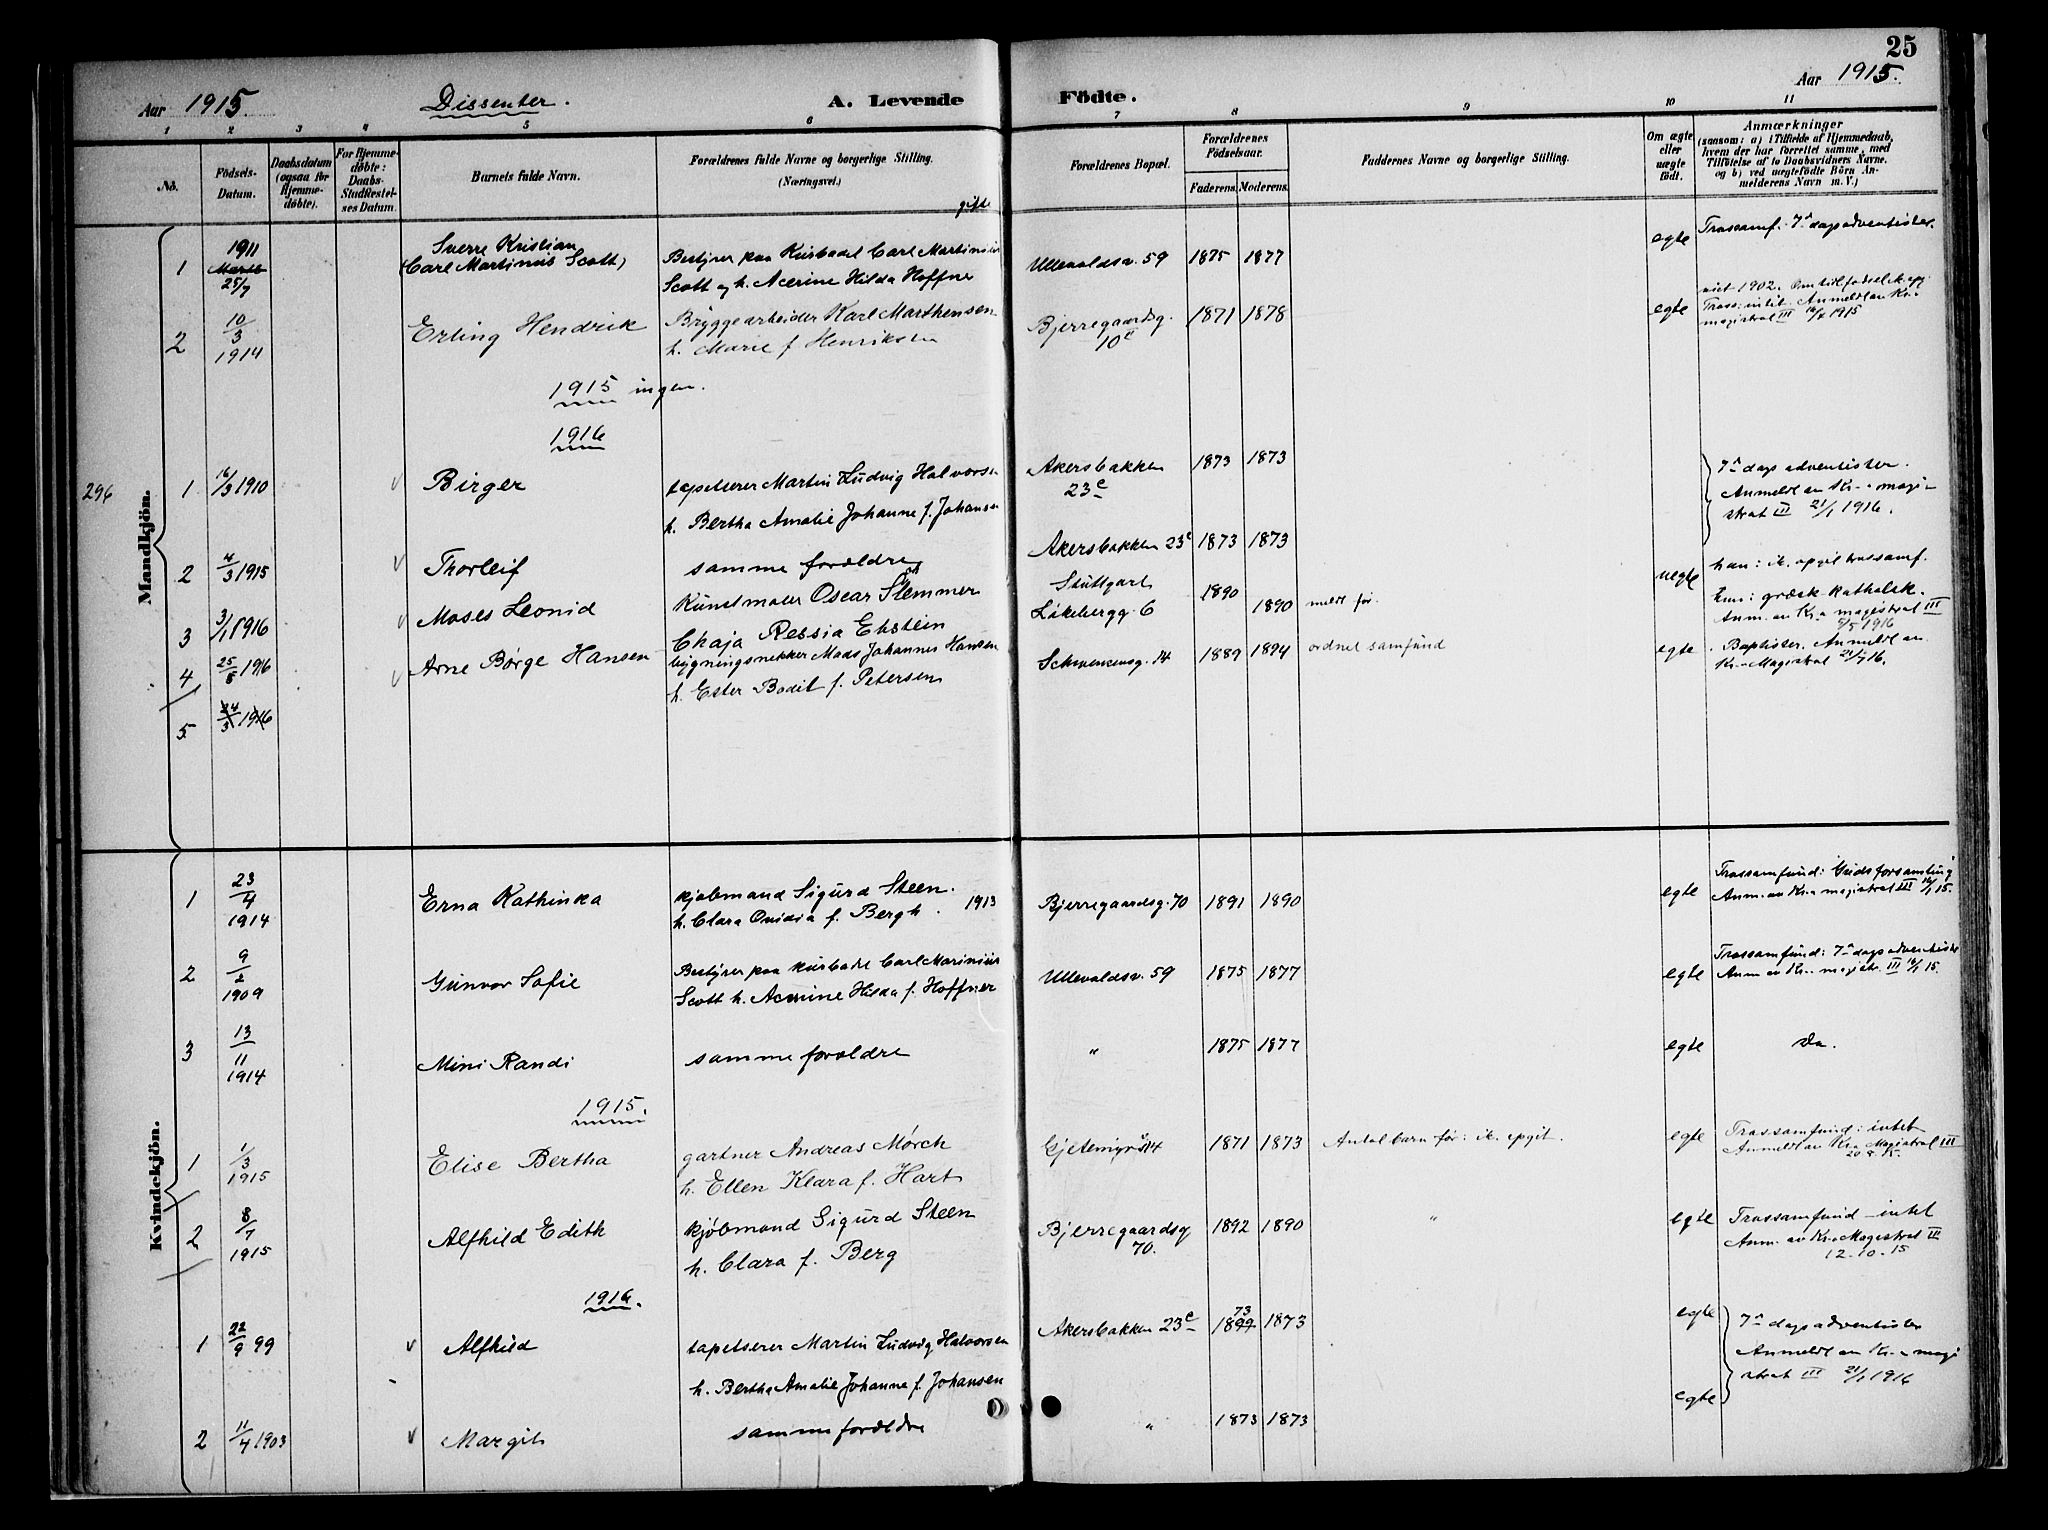 25
Aar 1915.
Dissenter.
A. Levende
Födte.
Aar 1915.
1 2 3 4 5 6 7 8 9 10 11
No.
Födsels-
Datum.
Daabsdatum
(ogsaa for
Hjemme-
døbte).
For Hjemme-
døbte:
Daabs-
Stadfæstel-
ses Datum.
Barnets fulde Navn.
Forældrenes fulde Navne og borgerlige Stilling.
(Næringsvei.)
gifte
Forældrenes Bopæl.
Forældrenes
Födselsaar.
Faderens. Moderens.
Faddernes Navne og borgerlige Stilling.
Om ægte
eller
uægte
født.
Anmærkninger
(saasom: a) i Tilfælde af Hjemmedaab,
hvem der har forrettet samme, med
Tilføielse af to Daabsvidners Navne,
og b) ved uægtefödte Börn An-
melderens Navn m. V.)
Mandkjön.
1 1911 25/7
Sverre Kristian
(Carl Martinus Scott)
Bestyrer paa Kurbadet Carl Martinius
Scott og h. Acerine Hilda Hoffner
Ullevoldsv. 59 1875 1877 egte
Trossamf. 7de dags adventister.
2 10/3 1914
Erling Hendrik
Bryggearbeider Karl Marthensen
h. Marie f. Henriksen
Bjerregaardsg.
10 II
1871 1878 egte
viet 1902.
Tross: intet. Anmeldt av Kr.a
magistrat III 1915
1915 ingen.
1916
296
1 16/3 1910
Birger
tapetserer Martin Ludvig Halvorsen
h. Bertha Amalie Johanne f. Johansen
Akersbakken
23c
1873 1873
7de dags adventister.
Anmeldt av Kr.a magi-
strat III 21/1 1916.
2 4/3 1915
Thorleif
samme forældre
Akersbakken 23c 1873 1873
3 3/1 1916
Moses Leonid
Kunstmaler Oscar Slemmer
Chaja Ressia Ekstein
Stuttgart 1890
Løkebergg. 6 1890
meldt før. uegte
han: ik. opgit trossamf.
hun: græsk katholsk.
Anm. av Kr.a magistrat III
5/5 1916
4 25/5 1916
Arne Børge Hansen
bygningssnekker Mads Johannes Hansen
h. Ester Bodil f. Petersen
Schwensensg. 14 1889 1894
ordnet samfund egte
Baptister. Anmeldt av
Kr.a Magistrat 21/7 16.
5. 24/3 1916
Kvindekjön.
1 23/4 1914
Erna Kathinka
kjøbmand Sigurd Steen.
h. Clara Ovidia f. Bergh. 1913
Bjerregaardsg. 70 1891 1890 egte
Trossamfund: Gudsforsamling
Anm. av Kr.a magistrat III 16/1 15.
2 9/2 1909
Gunvor Sofie
Bestyrer paa kurbadet Carl Marinius
Scott h. Acerine Hilda f. Hoffner
Ullevoldsv. 59 1875 1877 egte
Trossamfund: 7de dags adventister
Anm. av Kr.a magistr. III 16/1 15.
3 13/11 1914
Mini Randi
samme forældre
" 1875 1877 egte Do.
1915.
1 1/3 1915
Elise Bertha
gartner Andreas Mørch
h. Ellen Klara f. Hart
Gjetemyrsv. 14 1871 1873
Antal barn før: ik. opgit. egte
Trossamfund: intet
Anmeldt av Kr.a Magistrat III
2 8/7 1915
Alfhild Edith
kjøbmand Sigurd Steen
h. Clara f. Berg
Bjerregaardsg
70.
1892 1890 " egte
Trossamfund – intet
Anm. av Kr.a Magistrat III
12-10-15
1916.
1 22/9 99
Alfhild
tapetserer Martin Ludvig Halvorsen
h. Bertha Amalie Johanne f. Johansen
Akersbakken 23c 1899 73 1873 egte
7de dags adventister
Anmeldt av Kr.a magi
strat III 21/1 1916
2 11/4 1903
Margit
samme forældre
" 1873 1873 egte